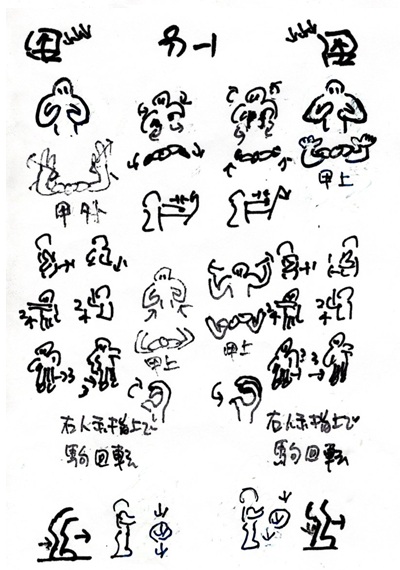 甲上
甲外
甲上
甲上
右人示指上で 右人示指上で
駒回転 駒回転